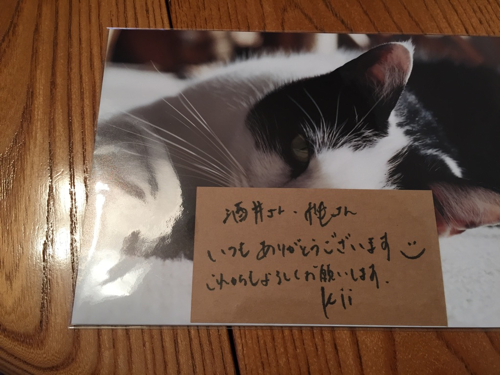 酒井さん・桃さん
いつもありがとうございます
これからもよろしくお願いします.
kii